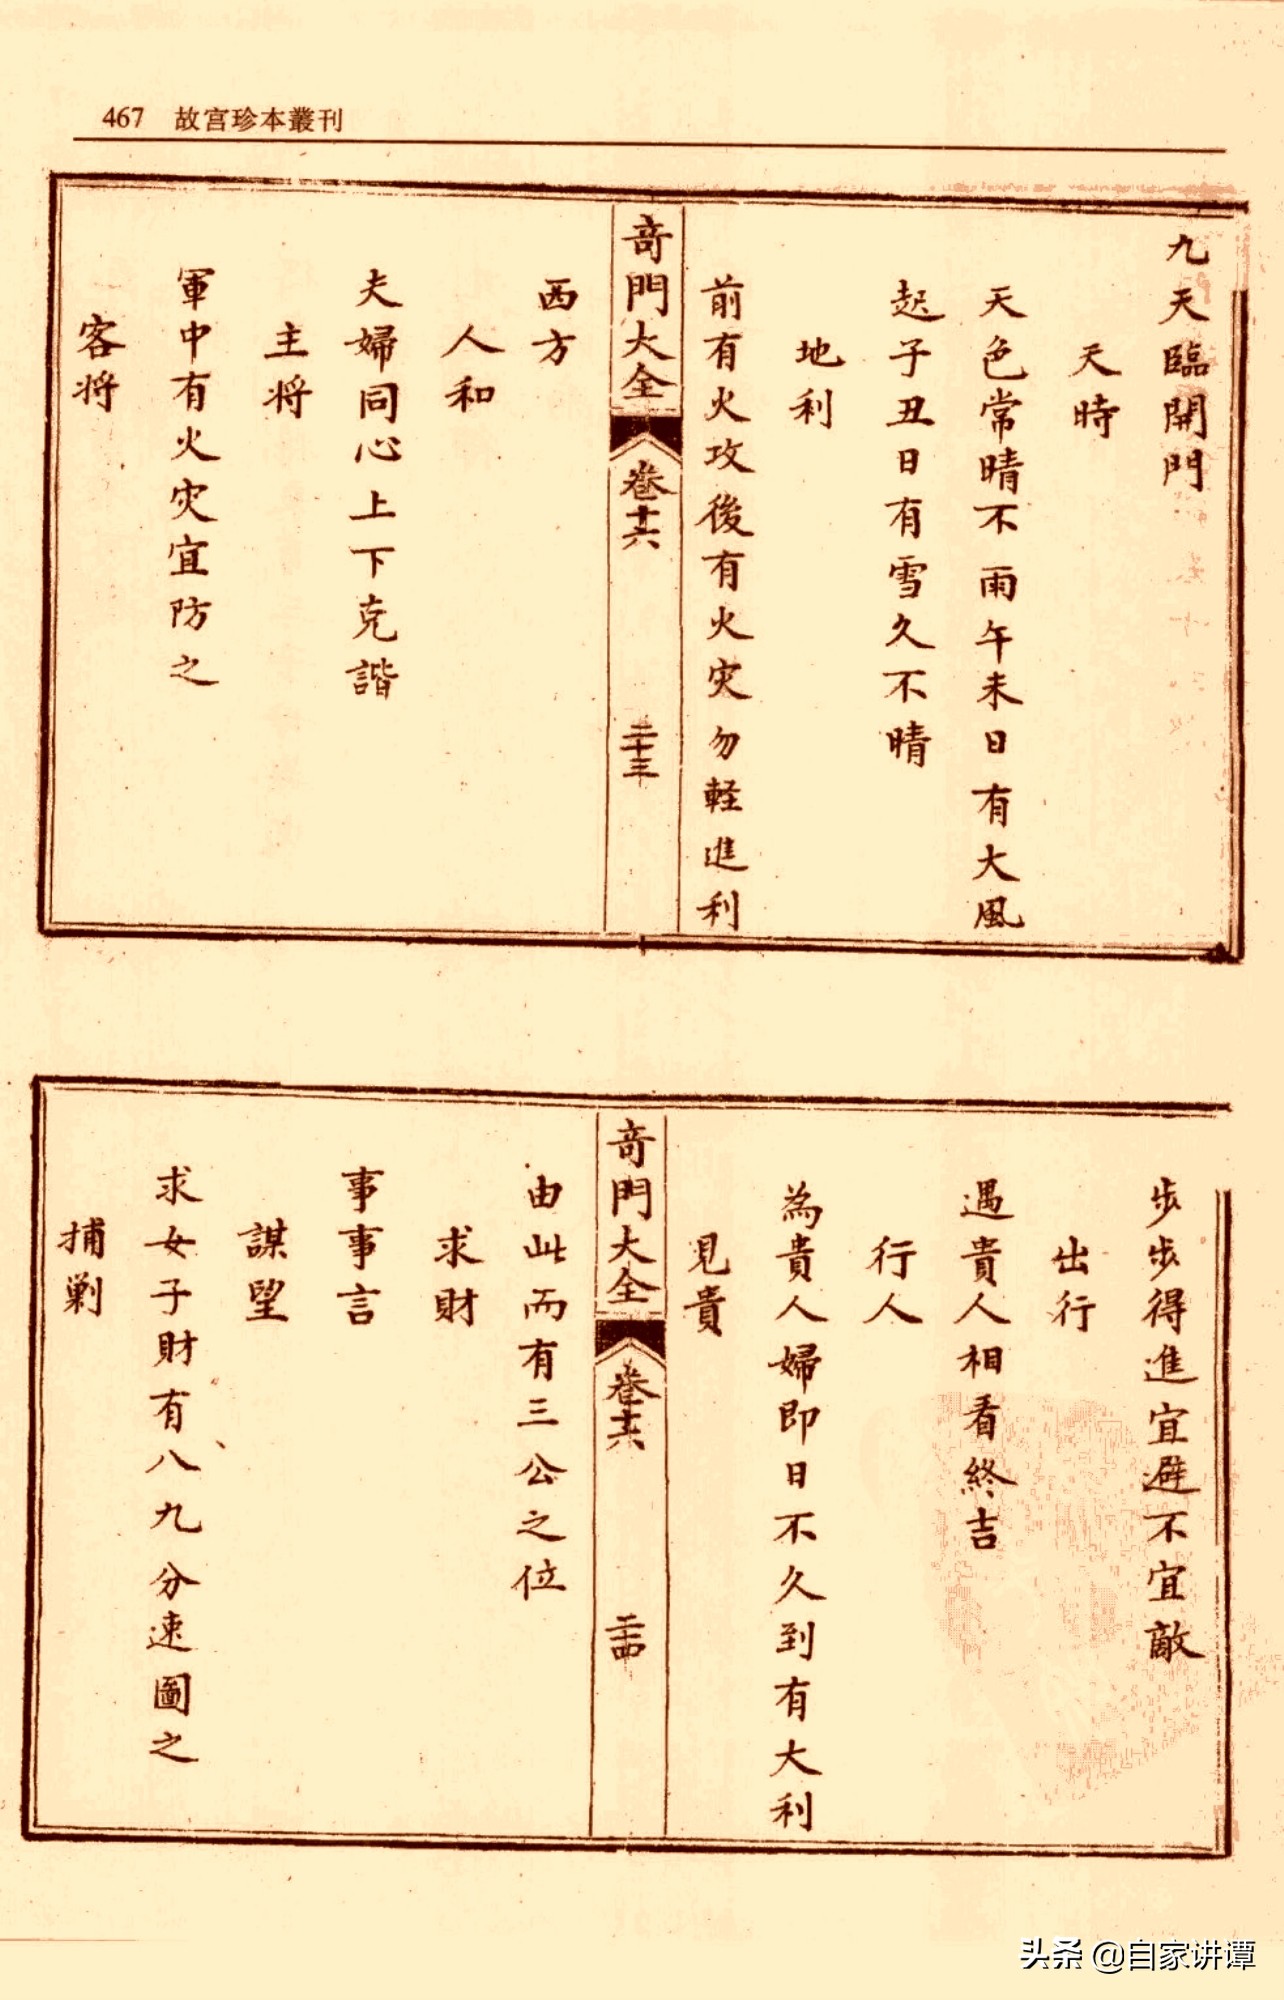 467 故宫珍本叢刊
九天臨開門
天時
天色常晴不雨午未日有大風
起子丑日有雪久不晴
地利
前有火攻後有火灾勿軽進利
奇門大全 卷十六 二十三
西方
人和
夫婦同心上下克諧
主将
軍中有火灾宜防之
客将
步步得進宜避不宜敵
出行
遇貴人相看終吉
行人
為貴人婦即日不久到有大利
見貴
奇門大全 卷十六 二十四
由此而有三公之位
求財
事事言
謀望
求女子財有八九分速圖之
捕剿
头条 @自家讲谭